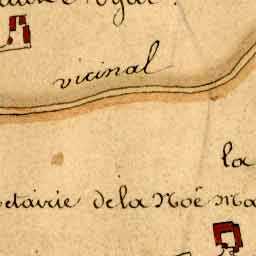 vicinal
la
etairie de la Noë Ma